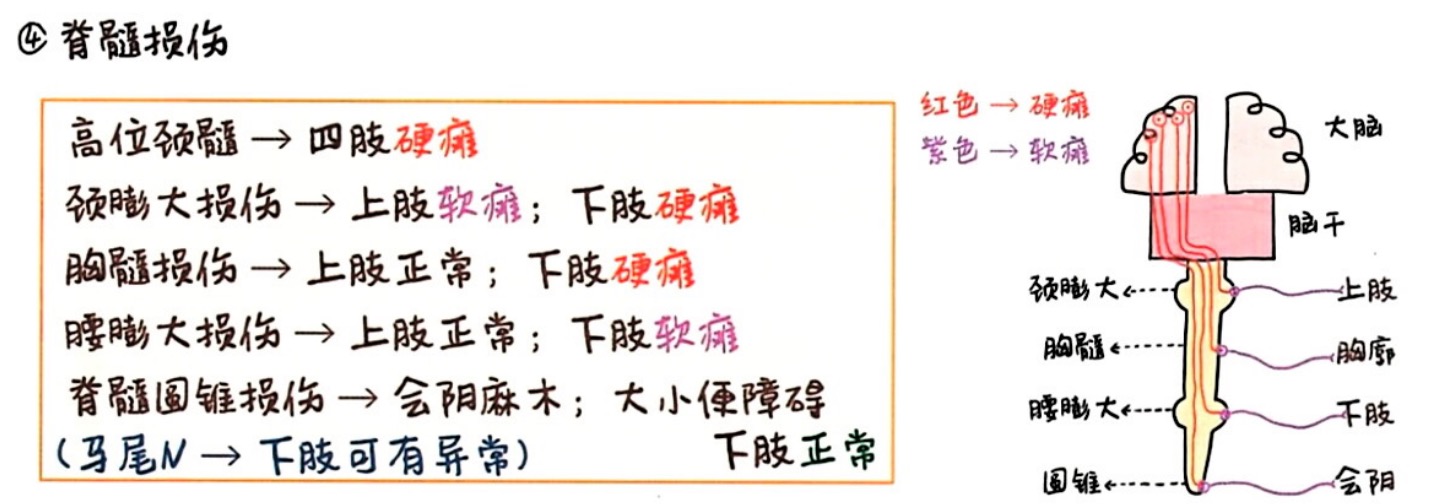 ④ 脊髓损伤
高位颈髓→四肢硬瘫
颈膨大损伤→上肢软瘫；下肢硬瘫
胸髓损伤→上肢正常；下肢硬瘫
腰膨大损伤→上肢正常；下肢软瘫
脊髓圆锥损伤→会阴麻木；大小便障碍
（马尾N→下肢可有异常） 下肢正常
红色→硬瘫
紫色→软瘫
大脑
脑干
颈膨大 上肢
胸髓 胸廓
腰膨大 下肢
圆锥 会阴